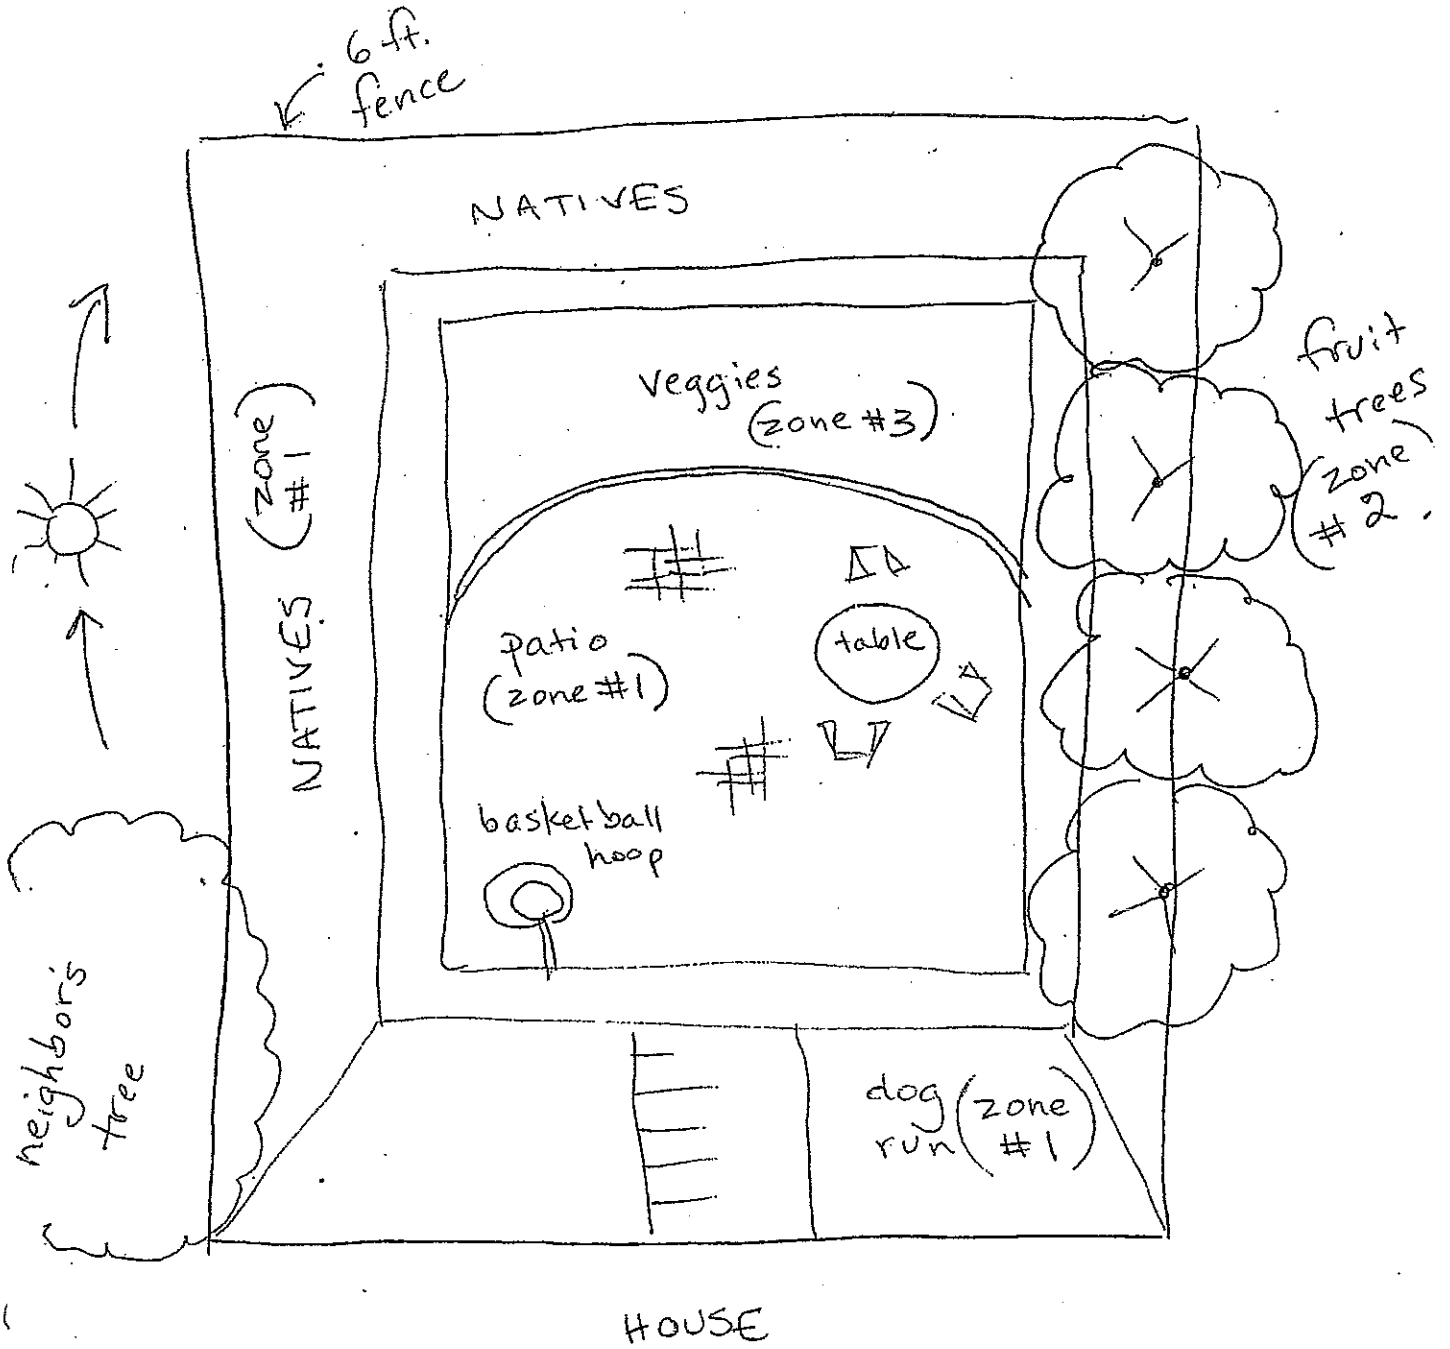 6 ft.
fence
NATIVES
veggies
(zone #3)
fruit
trees
(zone
#2)
NATIVES (zone
#1)
patio
(zone #1)
table
basketball
hoop
neighbors
tree
dog
run (zone
#1)
HOUSE